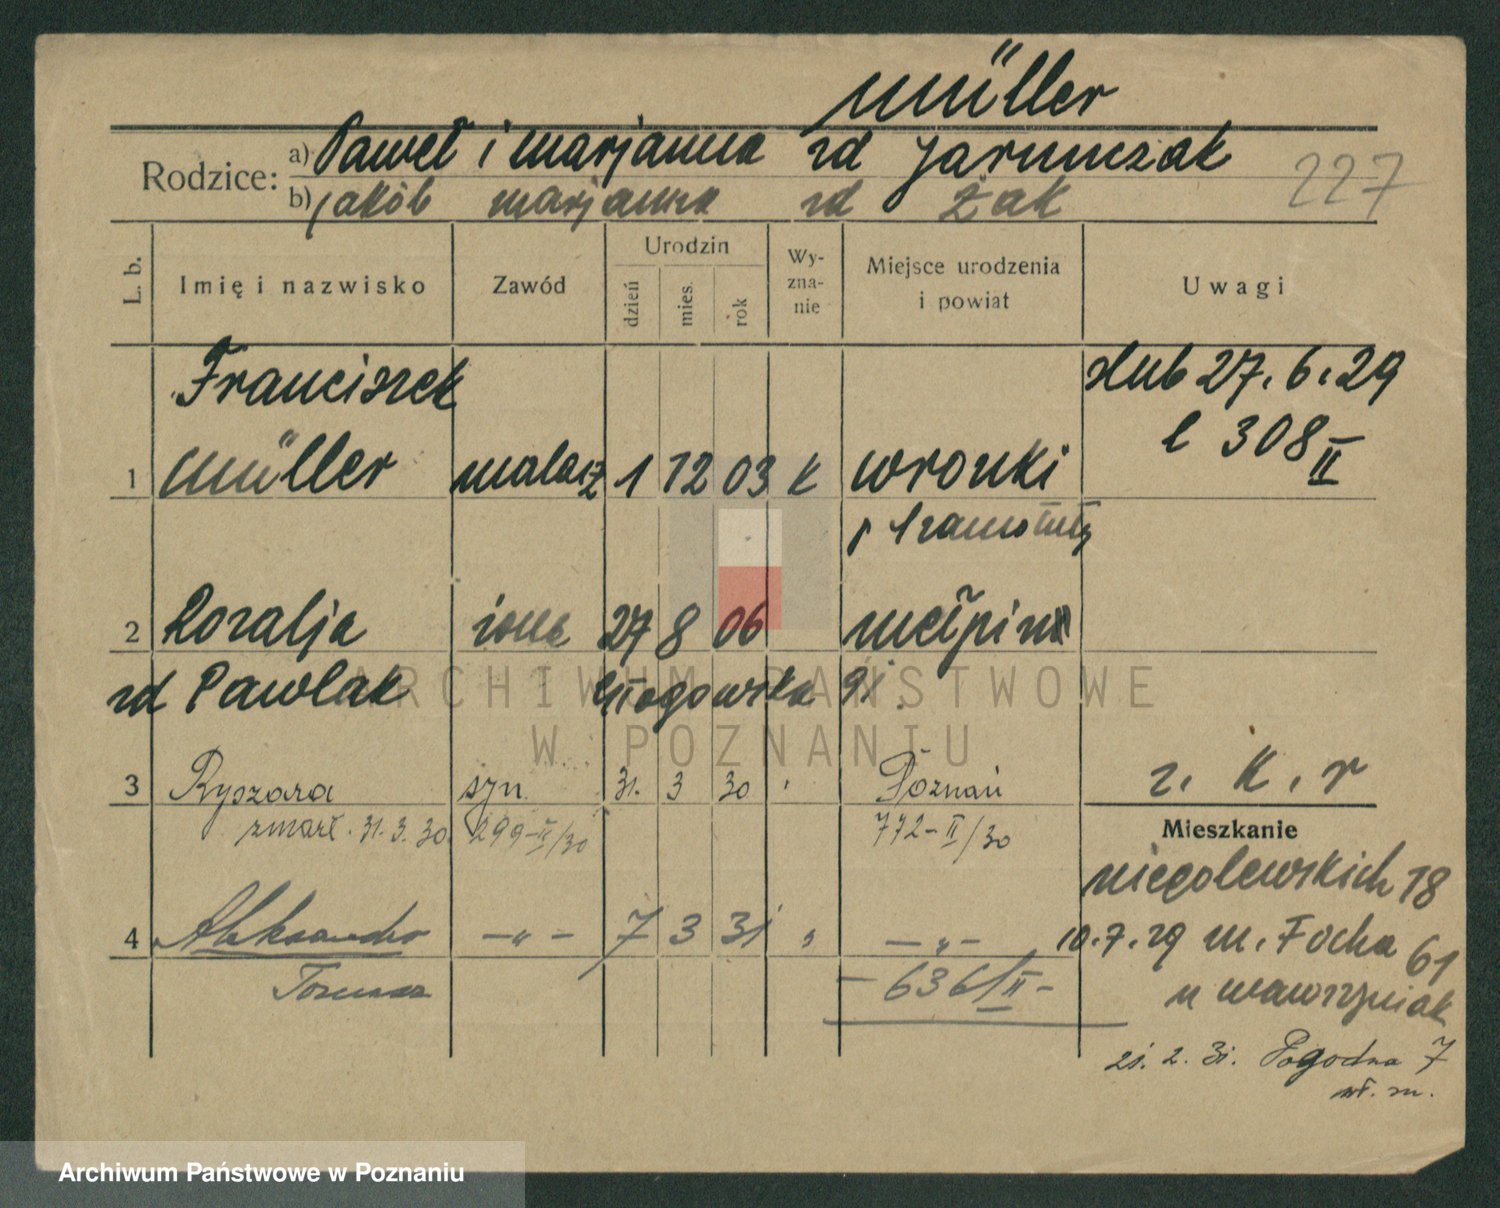 Müller
Rodzice: a) Paweł i Marjanna zd Jarmuczak
b) Jakób Marjanna zd Żak
227
L. b. Imię i nazwisko Zawód Urodzin dzień mies. rok Wy-zna-nie Miejsce urodzenia i powiat Uwagi
Franciszek
ślub 27.6.29
l 308 II
1 Müller malarz 1 12 03 k Wronki
p Szamotuły
2 Rozalja żona 27 8 06
zd Pawlak Głogowska 91.
3 Ryszard syn 31. 3 30 " Poznań
z. k. r
zmarł. 31.3.30. 299-II/30 772-II/30
Mieszkanie
Niegolewskich 18
4 Aleksander -„- 7 3 31 „ -„-
10.7.29 M. Focha 61
Tomasz - 636/II -
u Wawrzyniak
21. 2. 31. Pogodna 7
wł. m.
ARCHIWUM PAŃSTWOWE
W POZNANIU
Archiwum Państwowe w Poznaniu